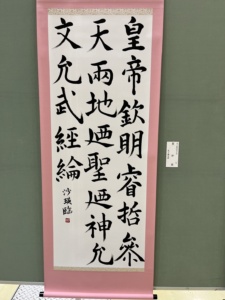 皇帝欽明睿哲參
天兩地廼聖廼神允
文允武經綸